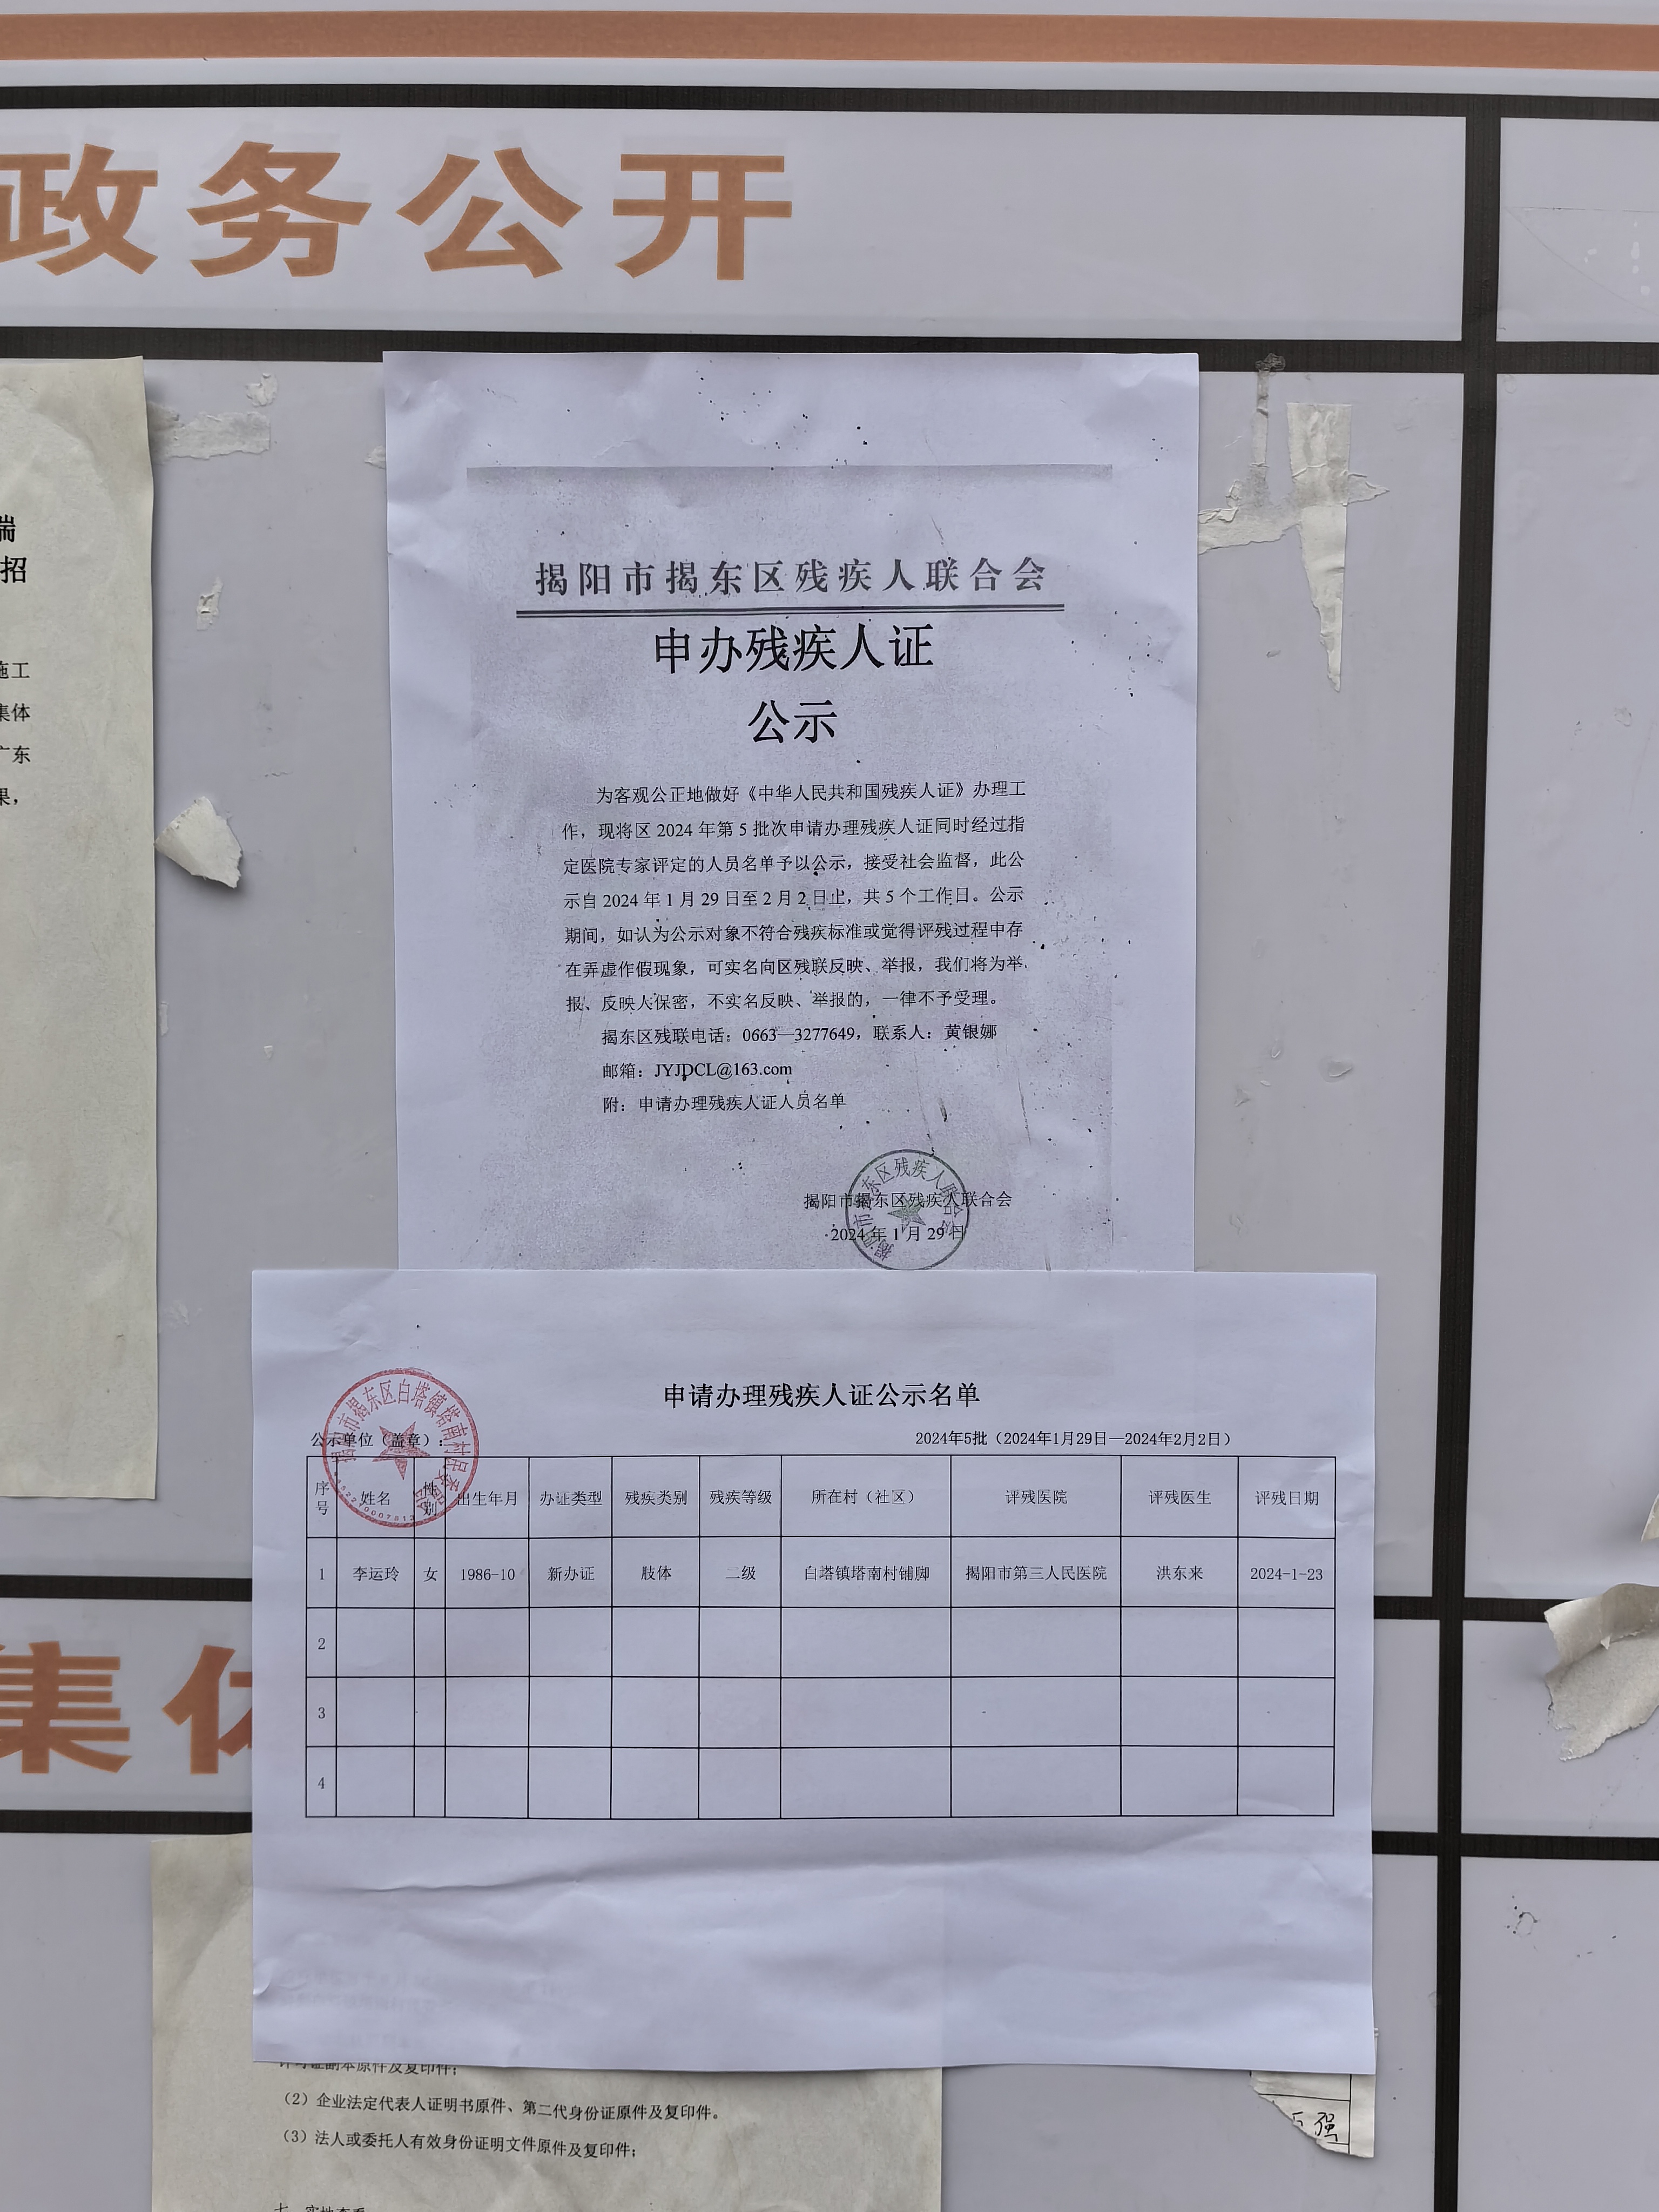 政务公开
揭阳市揭东区残疾人联合会
申办残疾人证
公示
为客观公正地做好《中华人民共和国残疾人证》办理工
作，现将区 2024 年第 5 批次申请办理残疾人证同时经过指
定医院专家评定的人员名单予以公示，接受社会监督，此公
示自 2024 年 1 月 29 日至 2 月 2 日止，共 5 个工作日。公示
期间，如认为公示对象不符合残疾标准或觉得评残过程中存
在弄虚作假现象，可实名向区残联反映、举报，我们将为举
报、反映人保密，不实名反映、举报的，一律不予受理。
揭东区残联电话：0663—3277649，联系人：黄银娜
邮箱：JYJDCL@163.com
附：申请办理残疾人证人员名单
揭阳市揭东区残疾人联合会
2024 年 1 月 29 日
揭阳市揭东区残疾人联合会
瑞
招
施工
集体
广东
果，
申请办理残疾人证公示名单
公示单位（盖章）：
2024年5批（2024年1月29日—2024年2月2日）
揭阳市揭东区白塔镇塔南村民委员会
序号 姓名 性别 出生年月 办证类型 残疾类别 残疾等级 所在村（社区） 评残医院 评残医生 评残日期
1 李运玲 女 1986-10 新办证 肢体 二级 白塔镇塔南村铺脚 揭阳市第三人民医院 洪东来 2024-1-23
2
3
4
集体
许可证副本原件及复印件；
（2）企业法定代表人证明书原件、第二代身份证原件及复印件。
（3）法人或委托人有效身份证明文件原件及复印件；
强